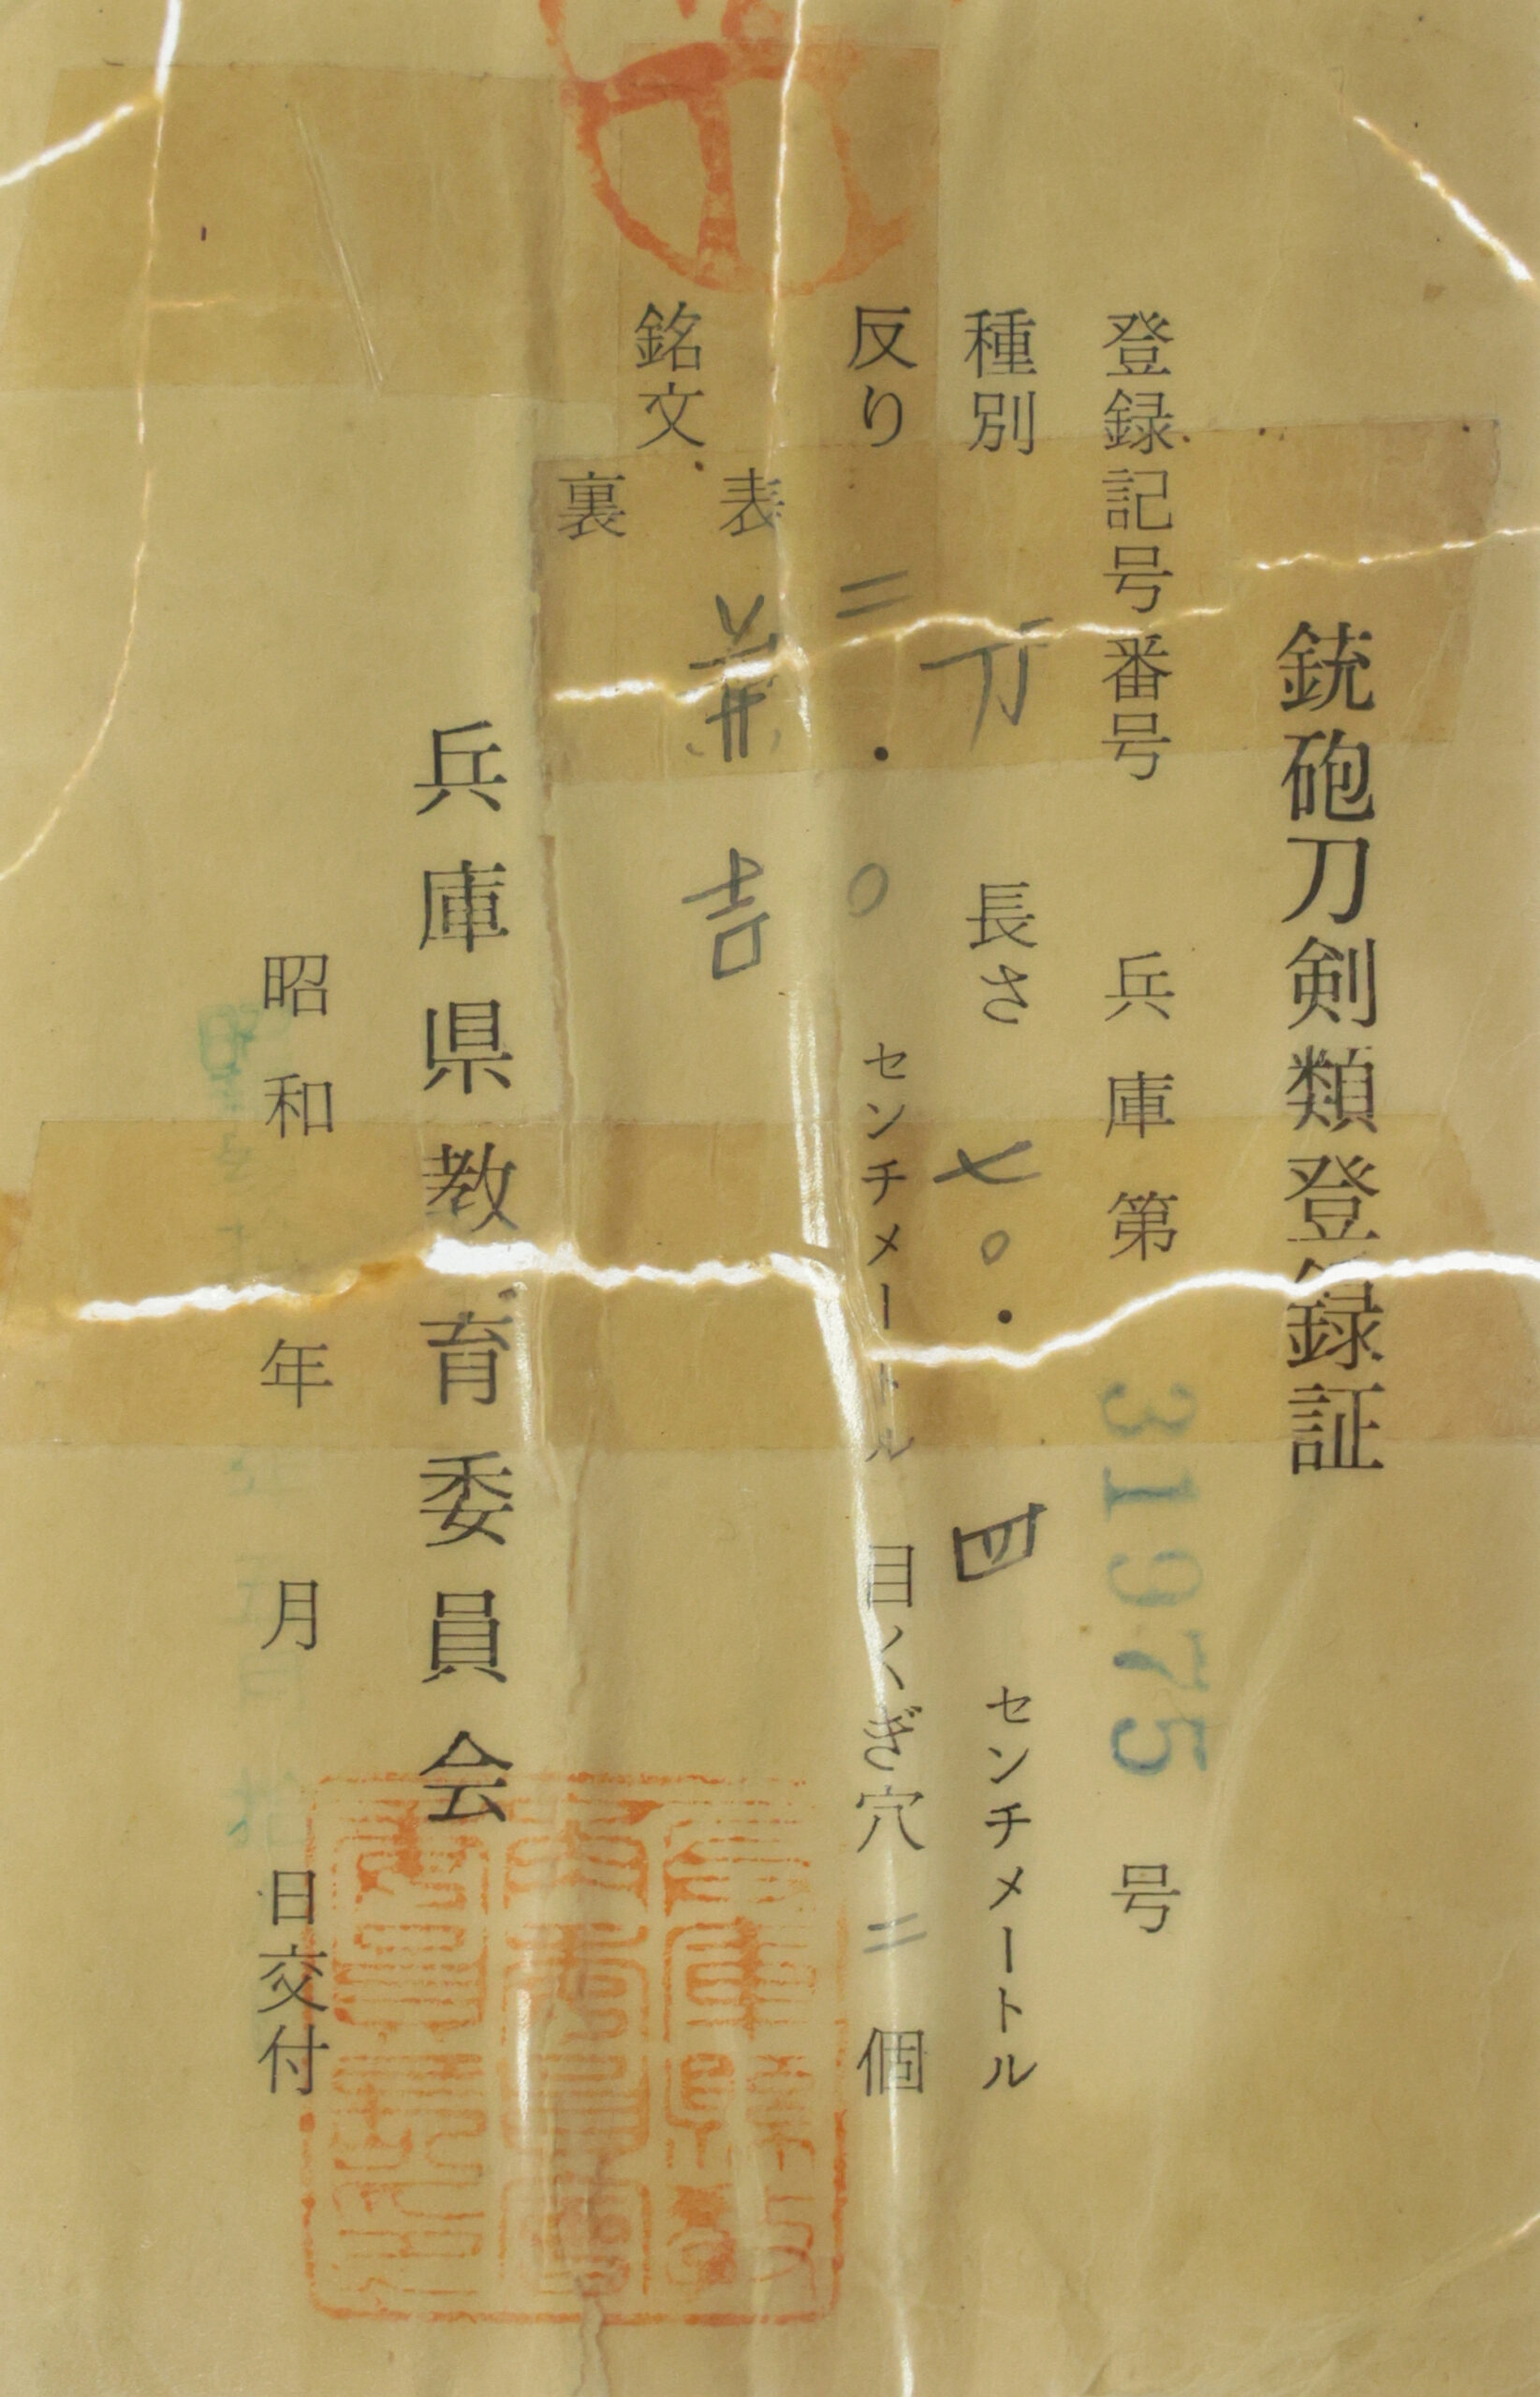 銃砲刀剣類登録証
登録記号番号 兵庫第 31975 号
種別 刀 長さ 七〇.四 センチメートル
反り 二.〇 センチメートル 目くぎ穴 二 個
銘文 表 兼吉
裏
兵庫県教育委員会
昭和 年 月 日交付